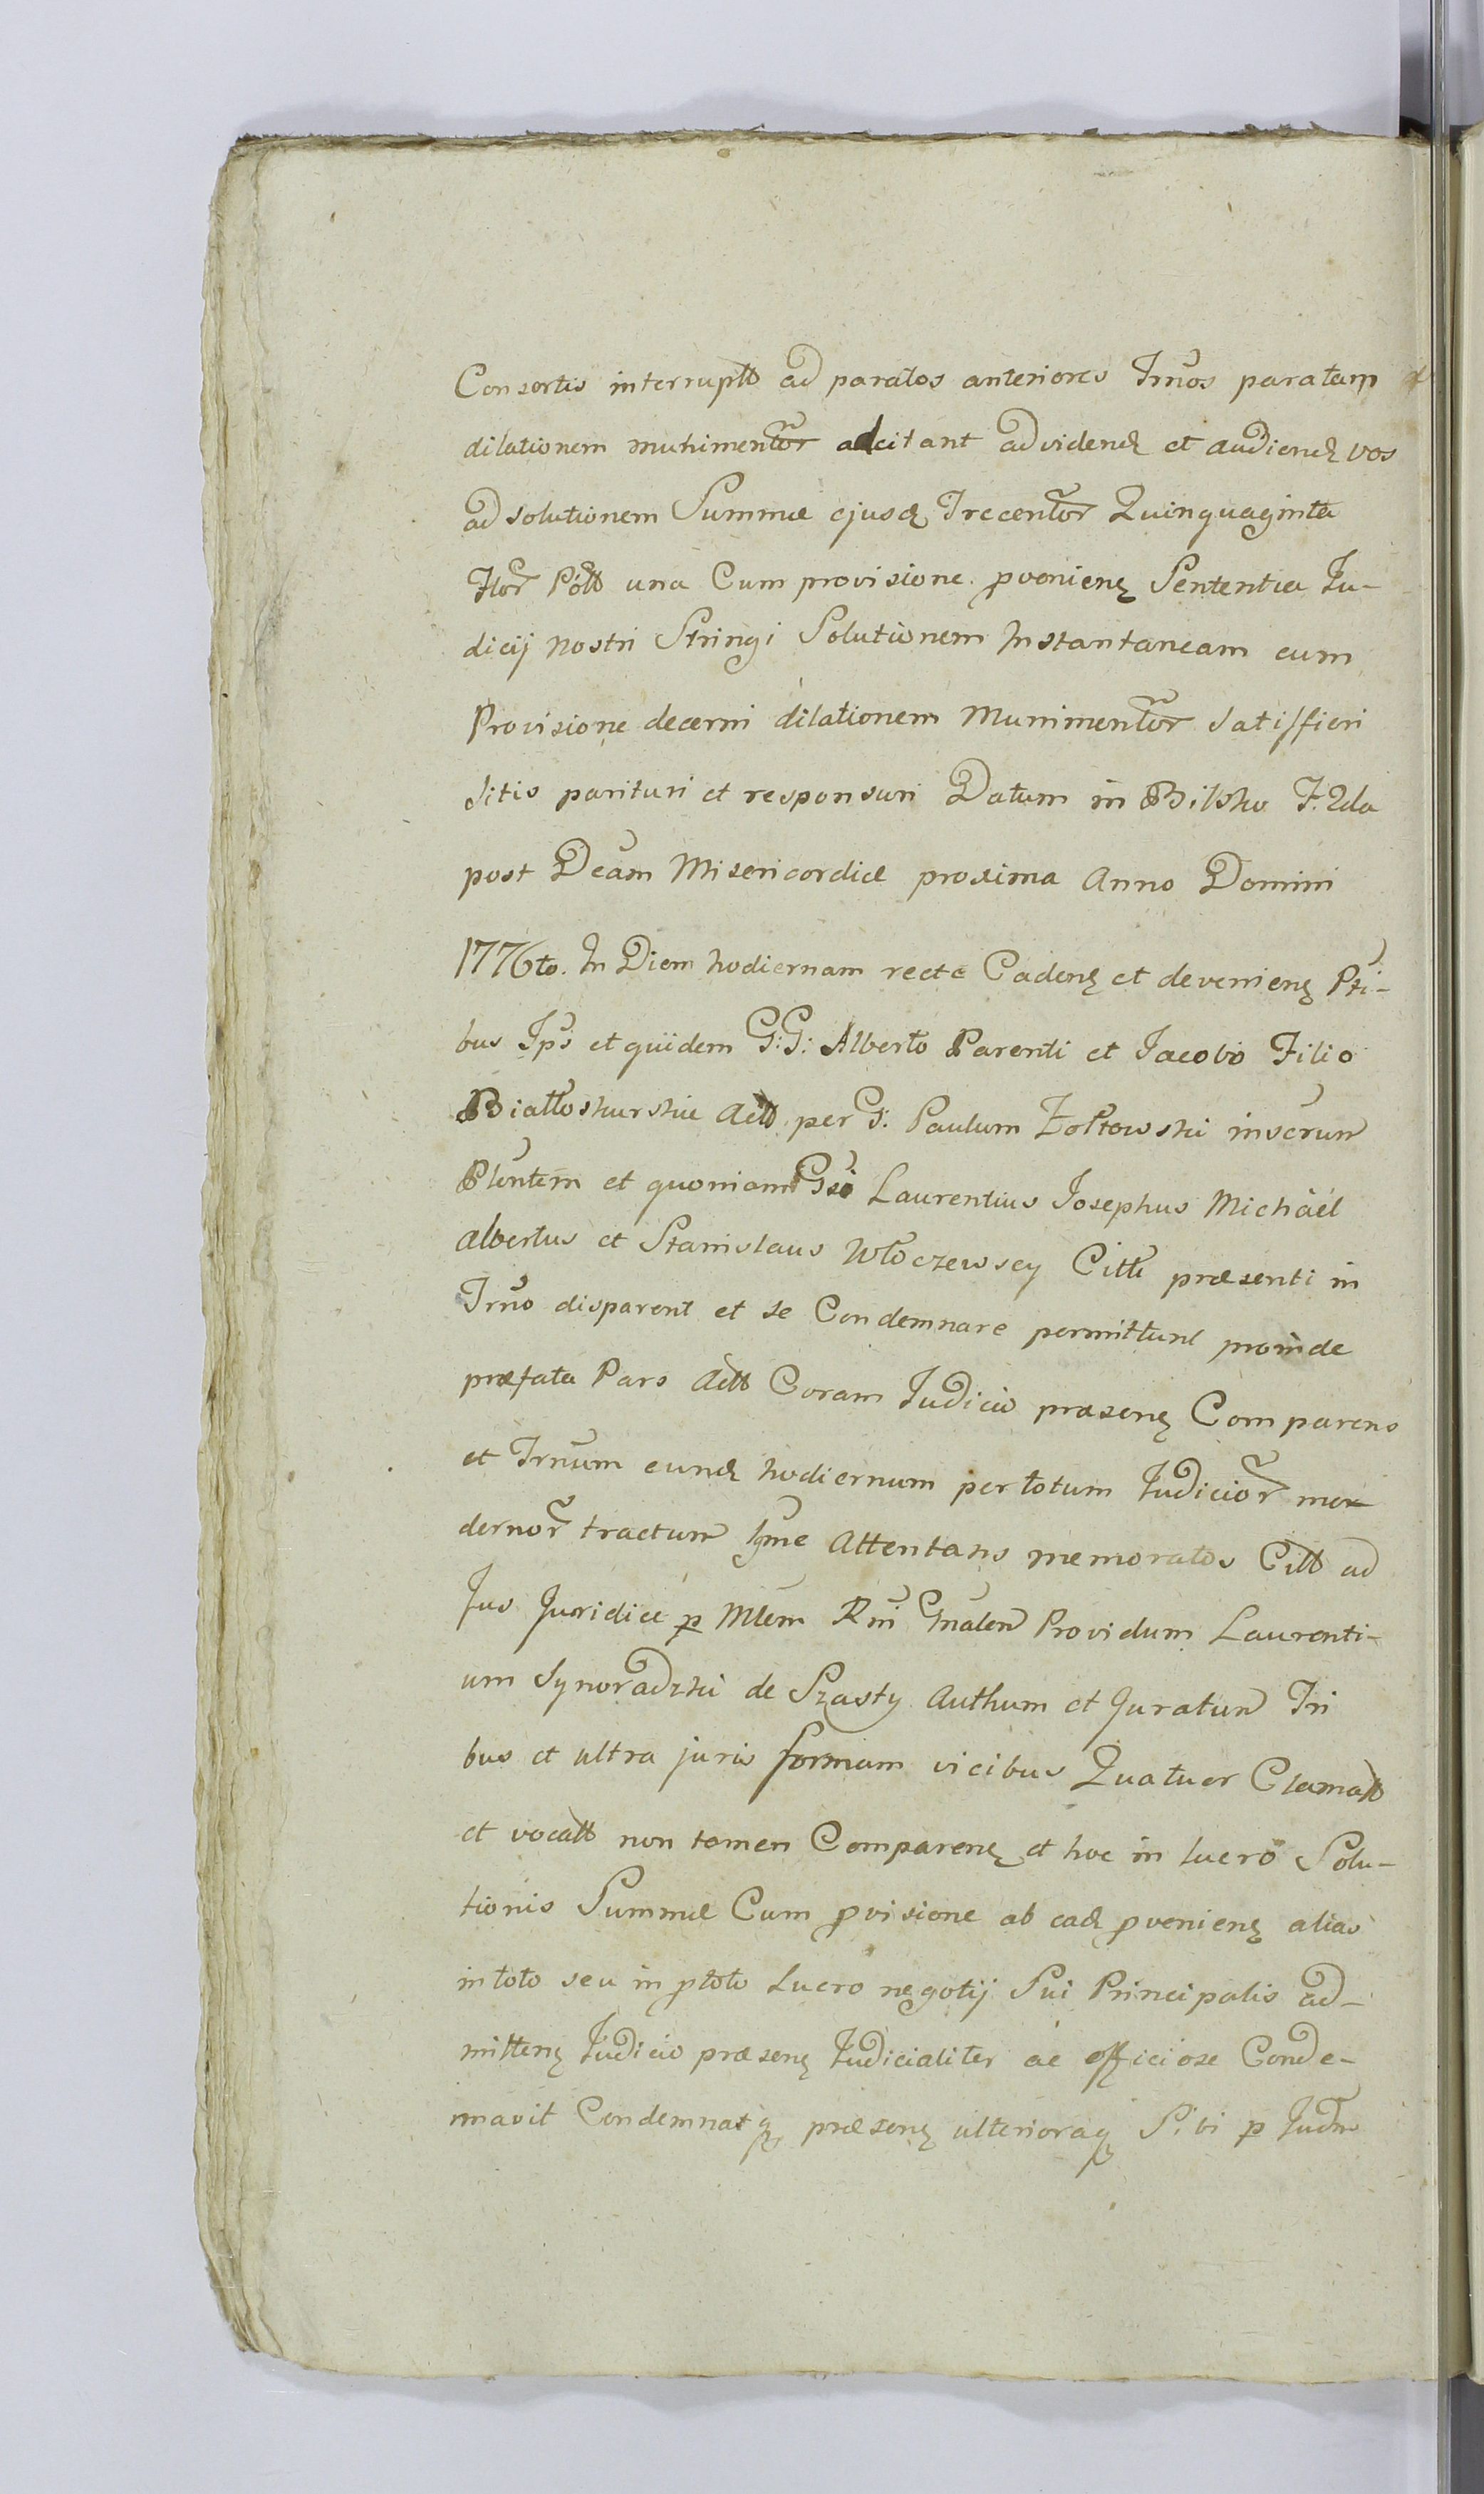 Consortis interrupttt ad paratos anteriores Trnos paratam et
dilationem munimentor adcitant ad vidend et audiend vos
ad solutionem Summæ ejusd Trecentor Quinquaginta
Flor Poltt una Cum provisione proenienq Sententia Ju-
dicij nostri Stringi Solutionem Instantaneam cum
Provisione decerni dilationem Munimentor Satisfieri
sitis parituri et responsuri Datum in Bilsko F. 2da
post Dcam Misericordiæ proxima Anno Domini
1776to. In Diem hodiernam recte Cadenq et devenienq Pti-
bus Ips et quidem G:G: Alberto Parenti et Jacobo Filio
Białłoskurskie Actt per G: Paulum Żołtowski inserun
Plentem et quoniam Gsi Laurentius Josephus Michaël
Albertus et Stanislaus Włoczewscy Citti præsenti in
Trno disparent et se Condemnare permittunt proinde
præfata Pars Actt Coram Judicio præsenq Comparens
et Trnum eund hodiernum per totum Judicior mo-
dernor tractum lgme Attentans memoratos Citt ad
Jus Juridice p Mlem Rni Gnalem Providum Laurenti-
um Synoradzki de Szasty Authum et Juratum Tri
bus et ultra juris formam vicibus Quatuor Clamatt
et vocatt non tamen Comparenq et hoc in lucro Solu-
tionis Summæ Cum pvisione ab ead pvenienq alias
in toto seu in ptoto Lucro negotij Sui Principalis ad-
mittenq Judicio præsenq Judicialiter ac officiose Conde-
mnavit Condemnatq præsenq ulterioraq Sibi p Judm